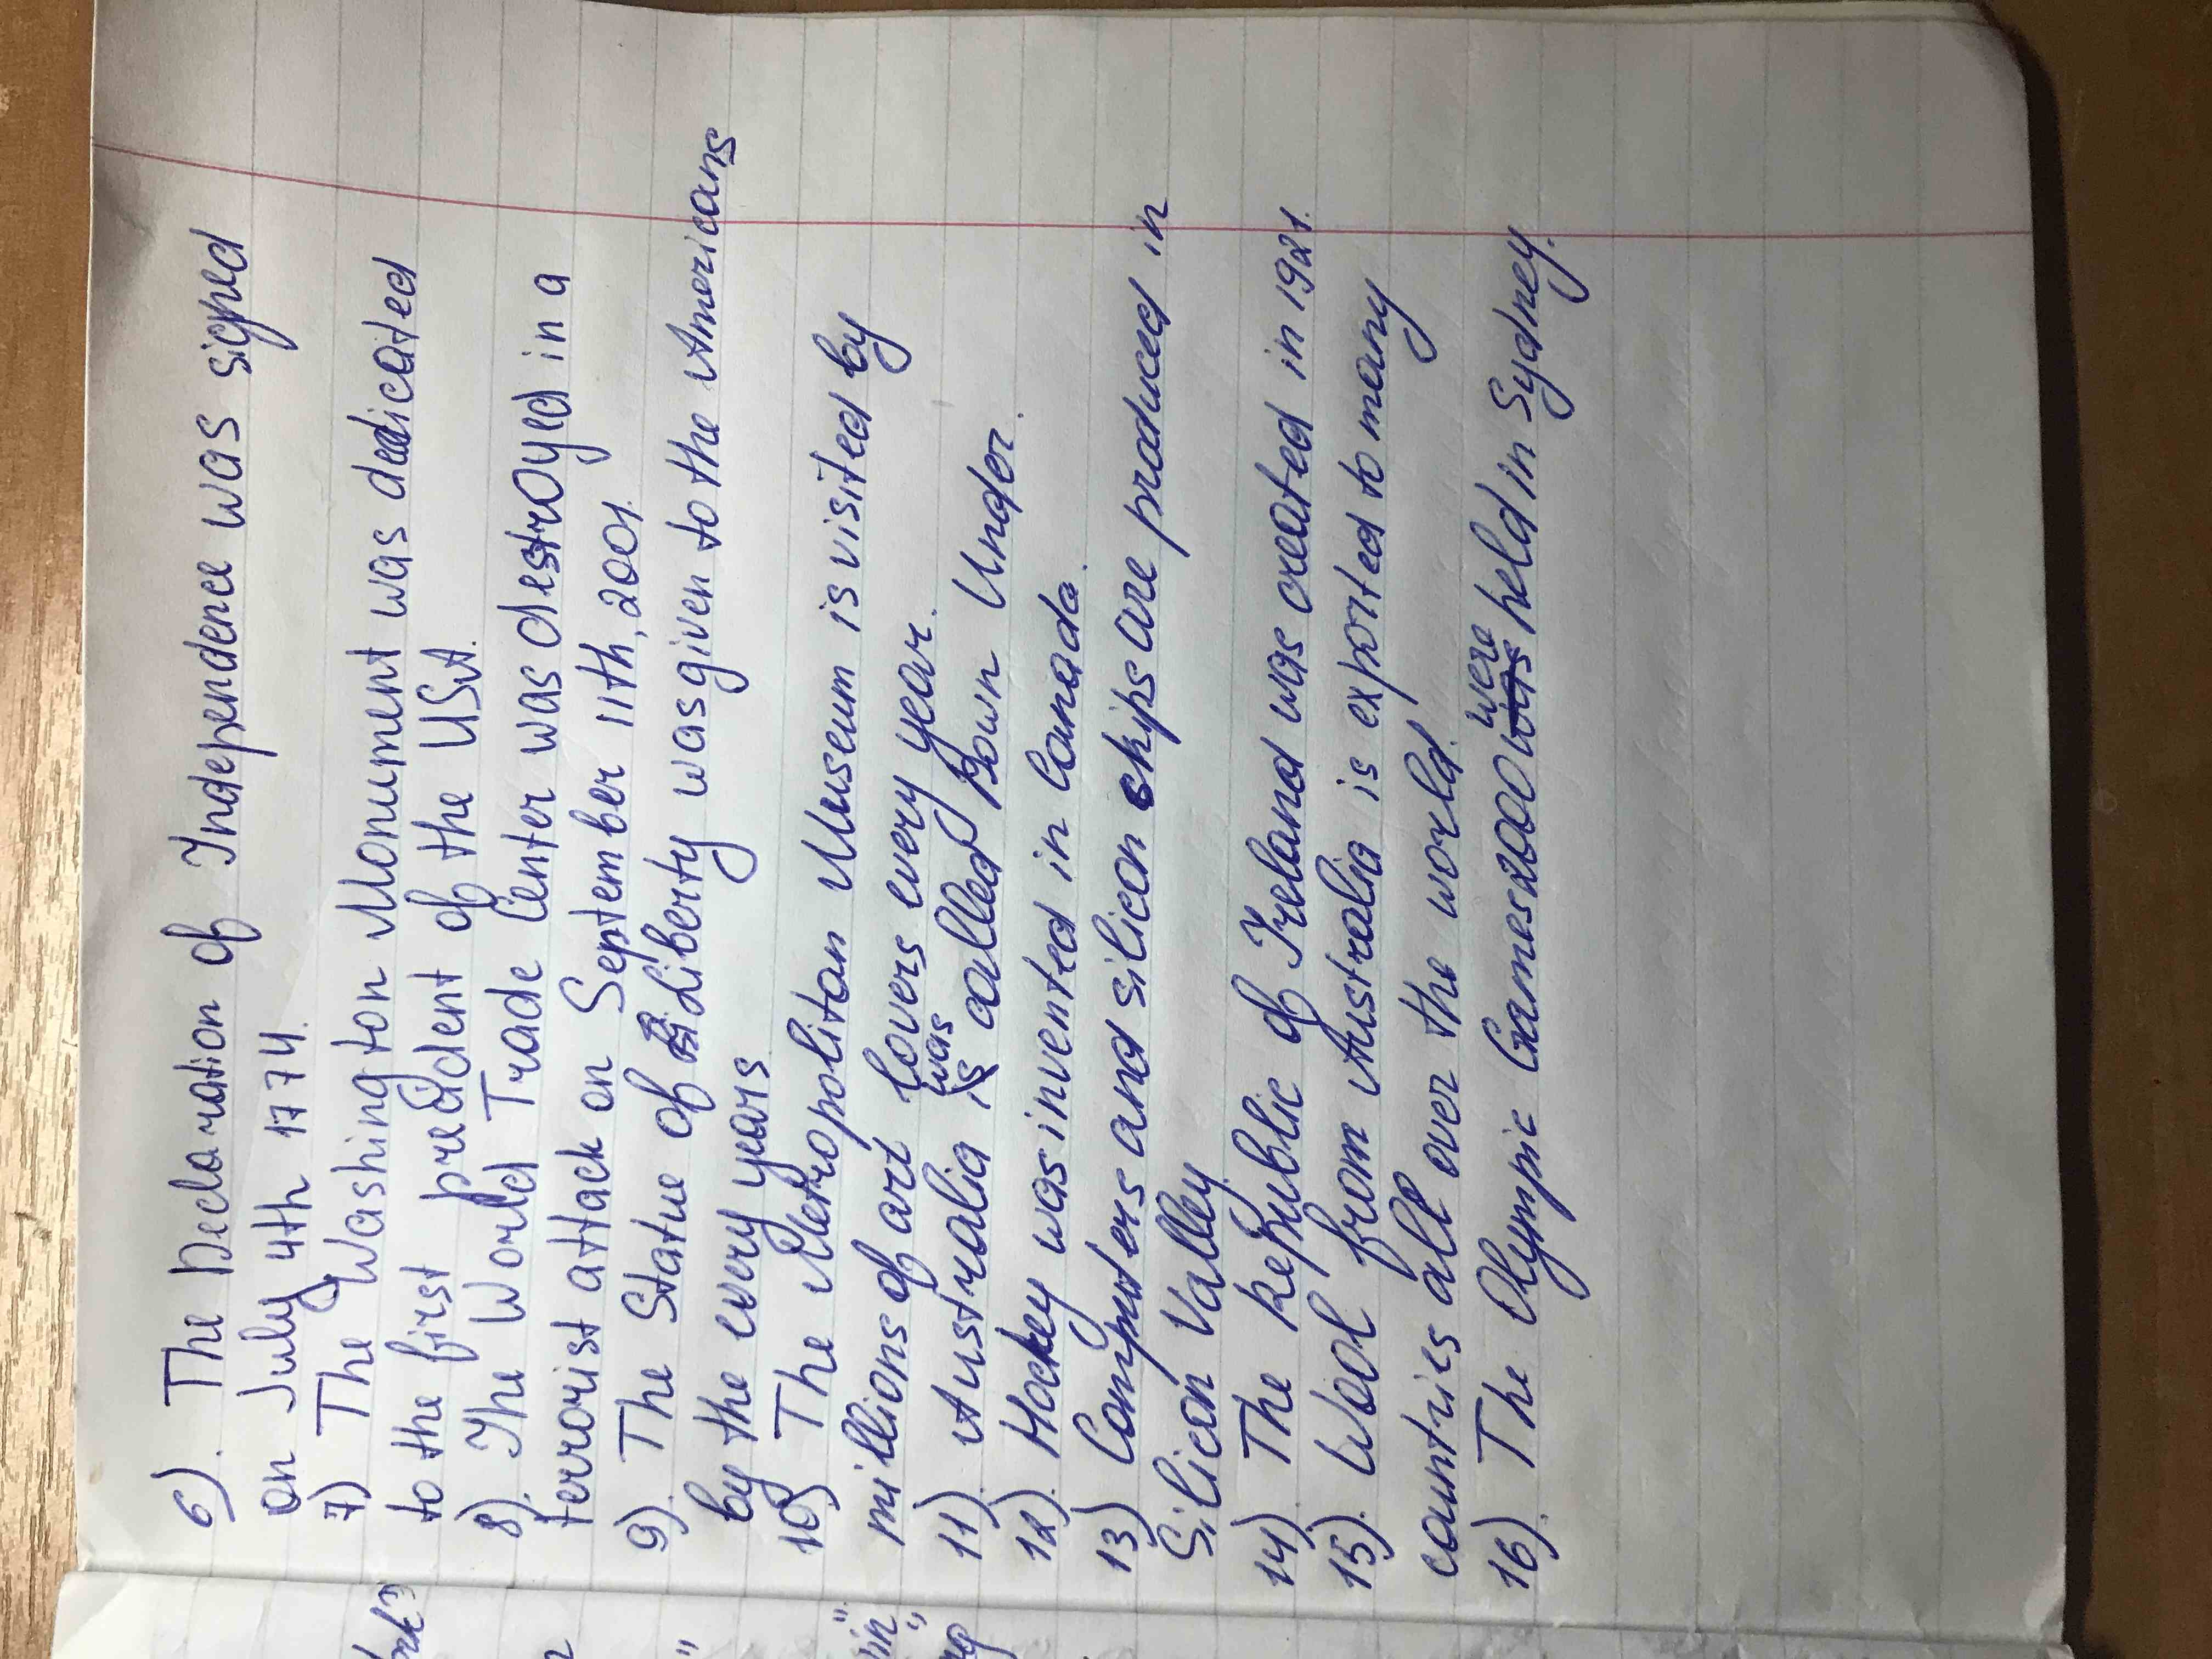 6). The Declaration of Independence was signed
on July 4th 1774.
7) The Washington Monument was dedicated
to the first president of the USA.
8). The World Trade Center was destroyed in a
terrorist attack on September 11th, 2001.
9). The Statue of Liberty was given to the Americans
by the every years
10) The Metropolitan Museum is visited by
millions of art lovers every year.
11). Australia was called Down Under.
12). Hockey was invented in Canada.
13) Computers and silicon chips are produced in
Silicon Valley.
14). The Republic of Ireland was created in 1921.
15). Wool from Australia is exported to many
countries all over the world.
16). The Olympic Games 2000 were held in Sydney.